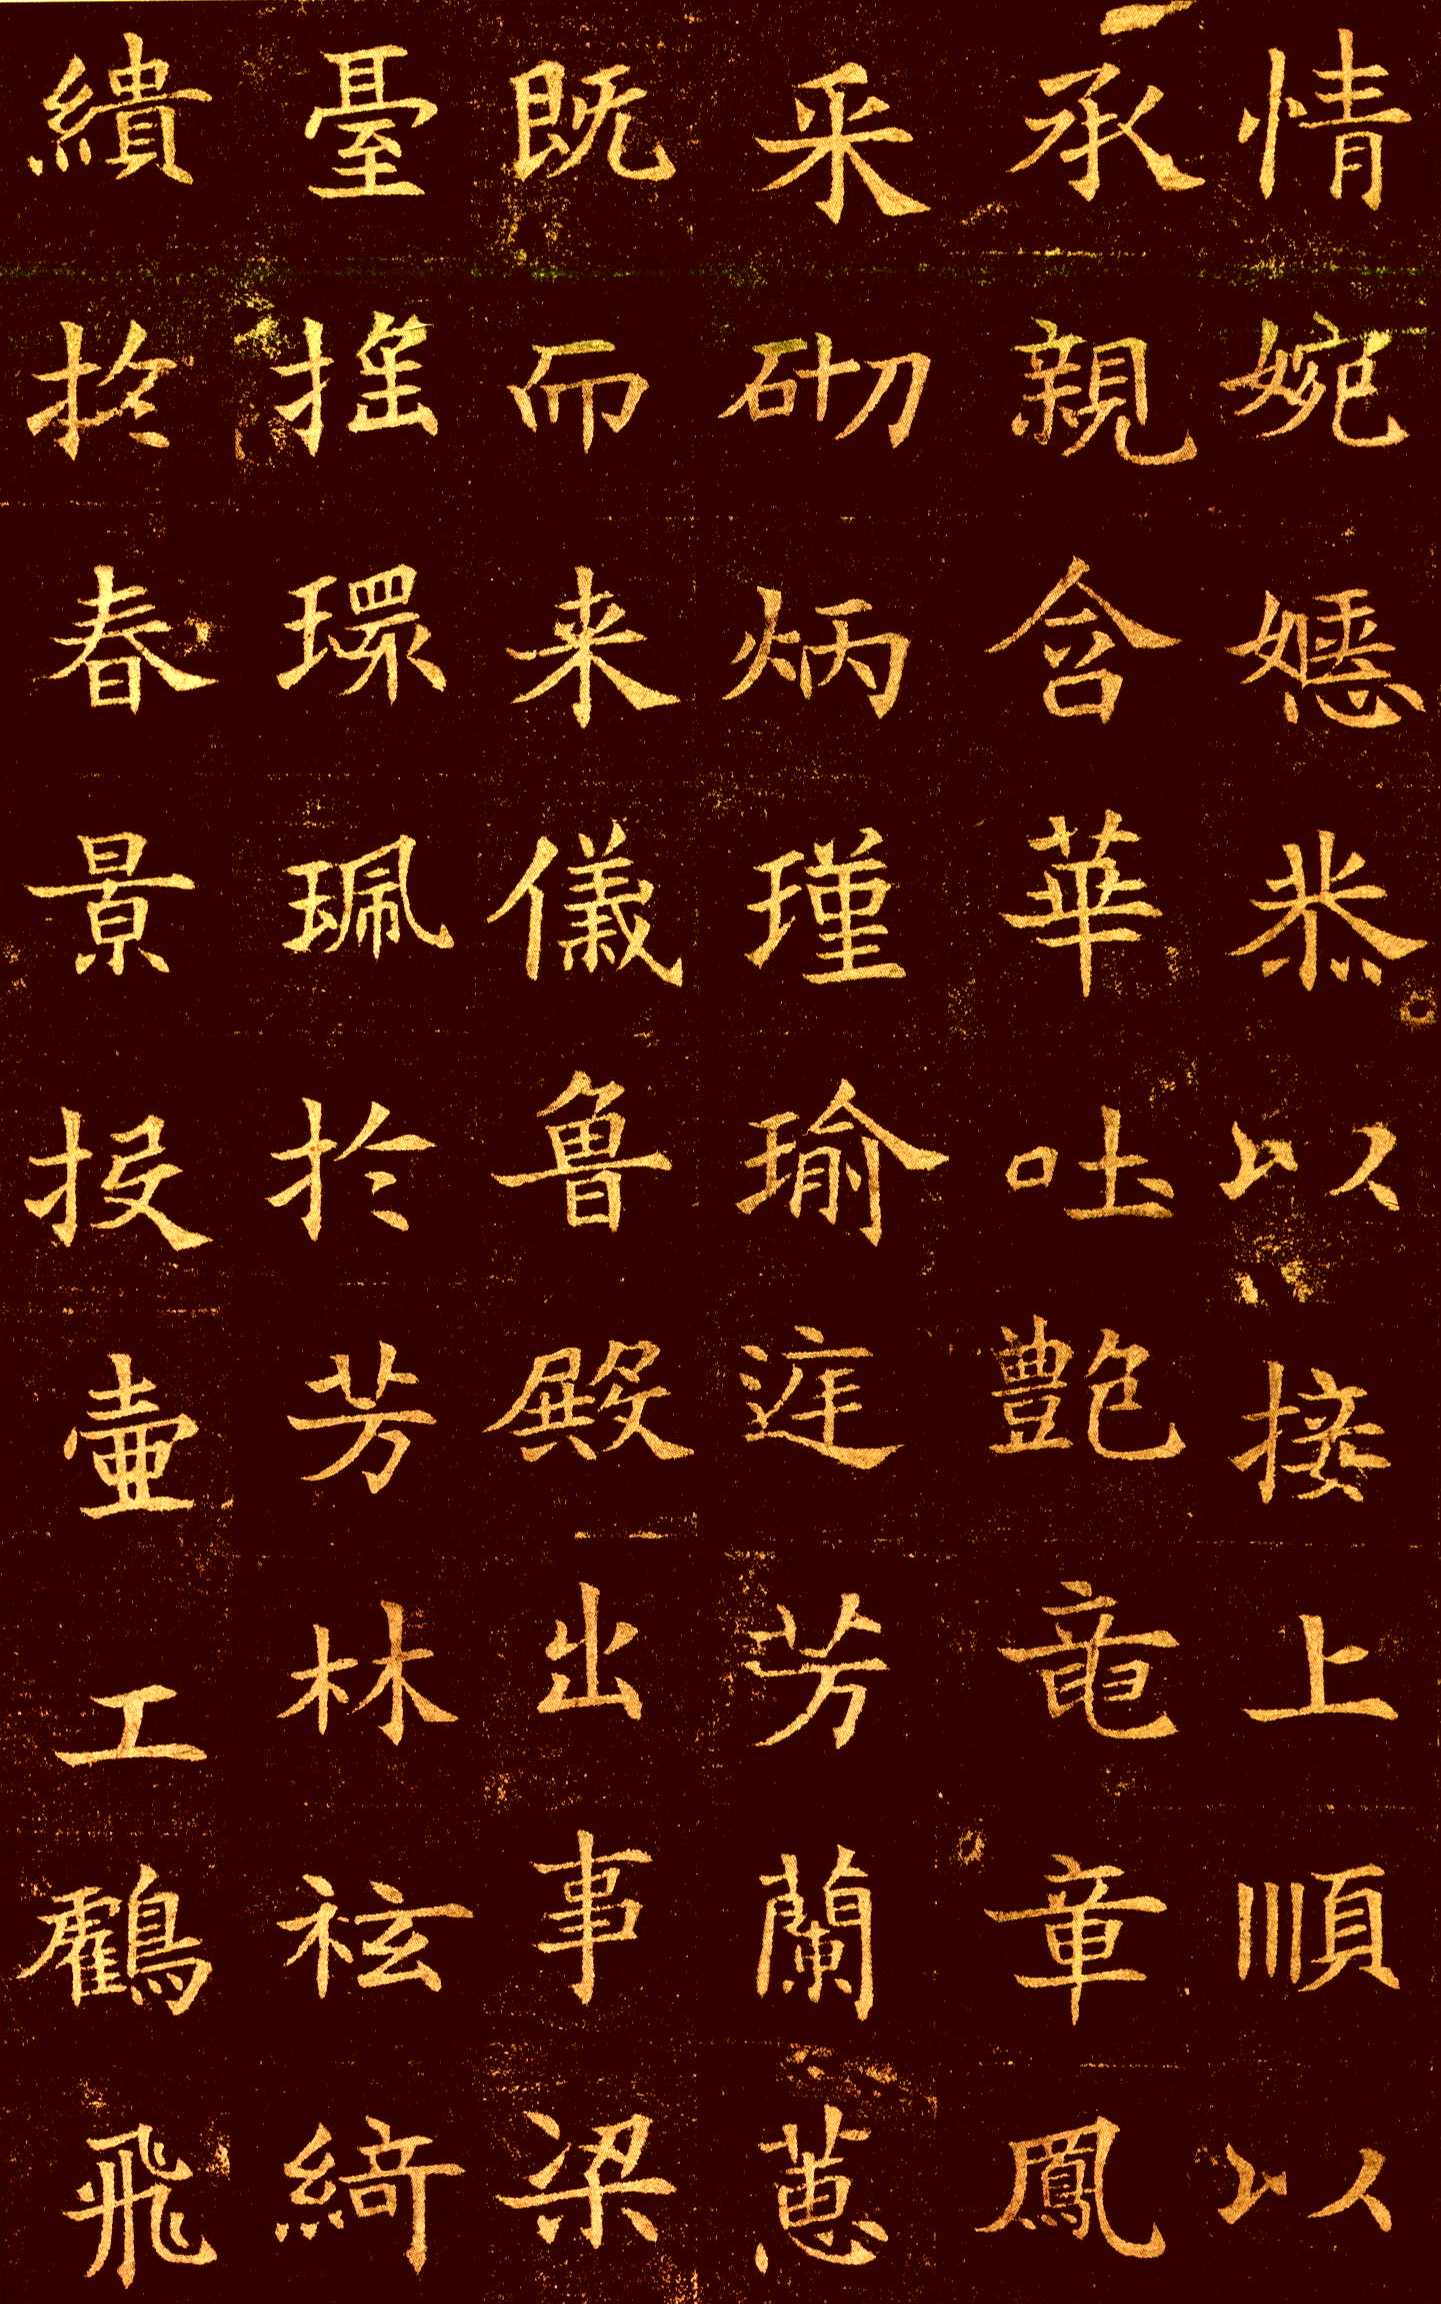 情婉嫕恭以接上順以
承親含華吐艷竜章鳳
采砌炳瑾瑜庭芳蘭蕙
既而来儀魯殿出事梁
臺搖環珮於芳林袨綺
繢於春景投壺工鸖飛